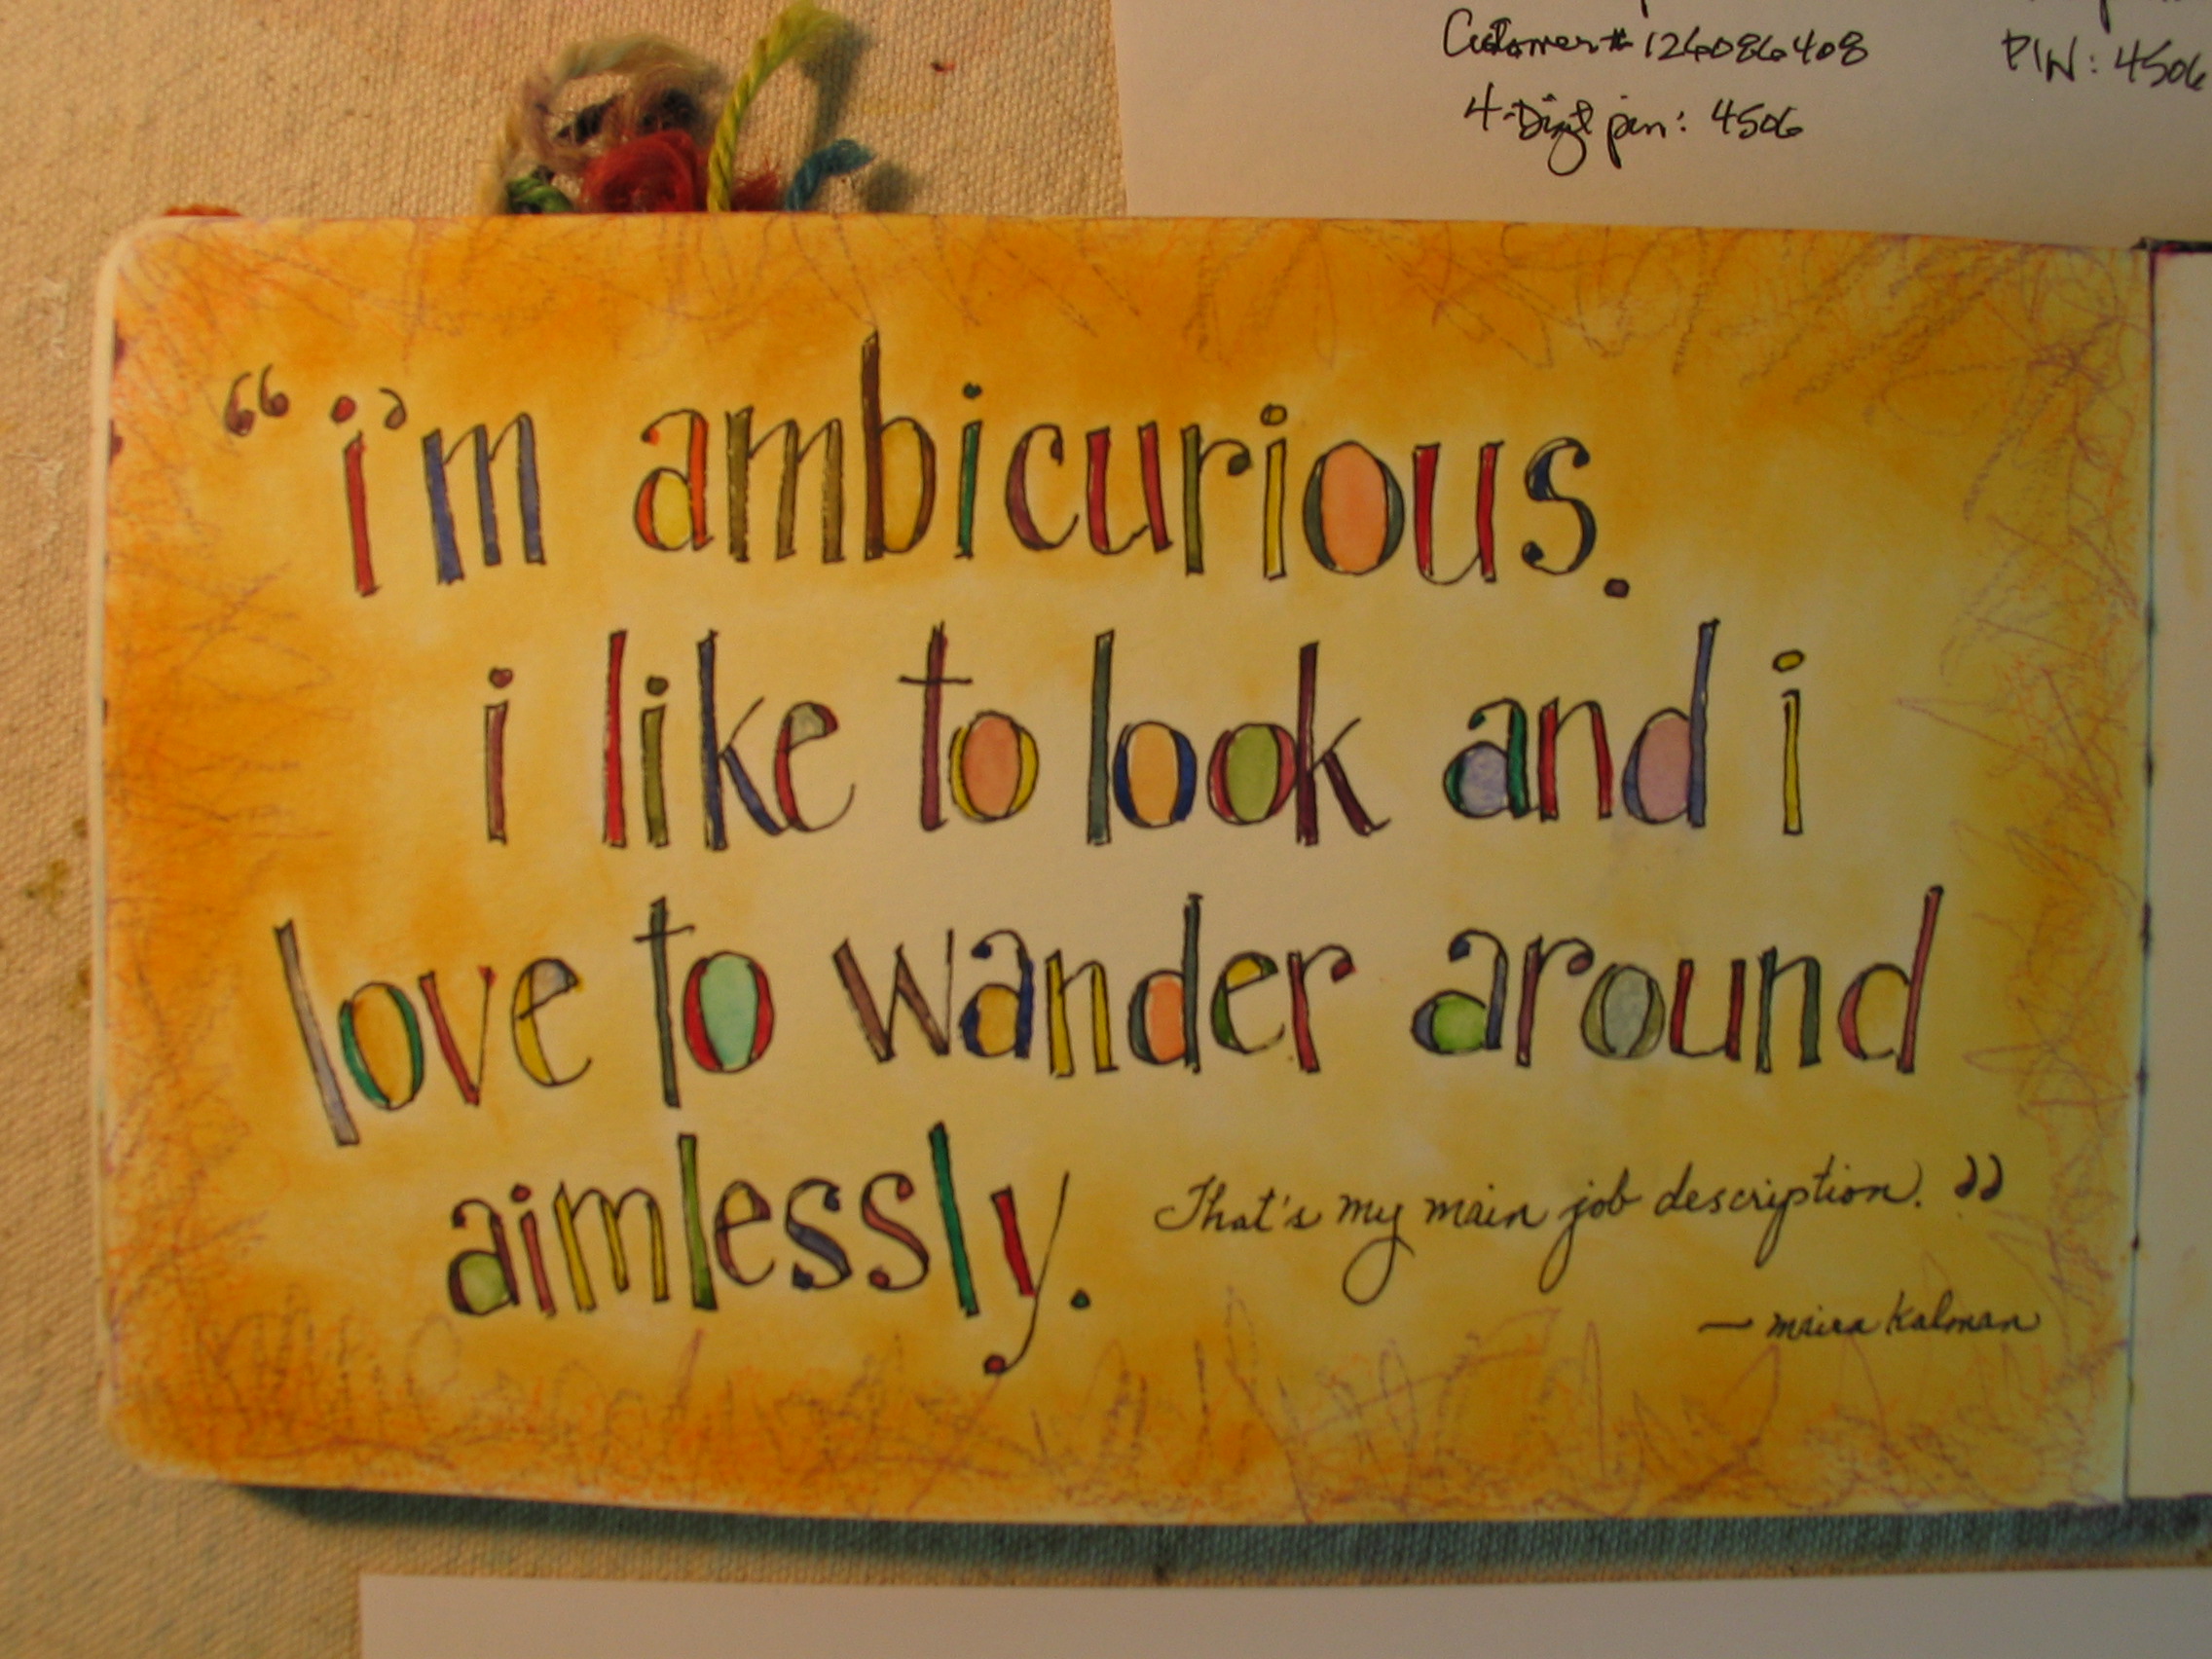 Customer# 126086408
4-Digit pin: 4506
PIN: 4506
“i'm ambicurious.
i like to look and i
love to wander around
aimlessly. That's my main job description.”
— maira kalman